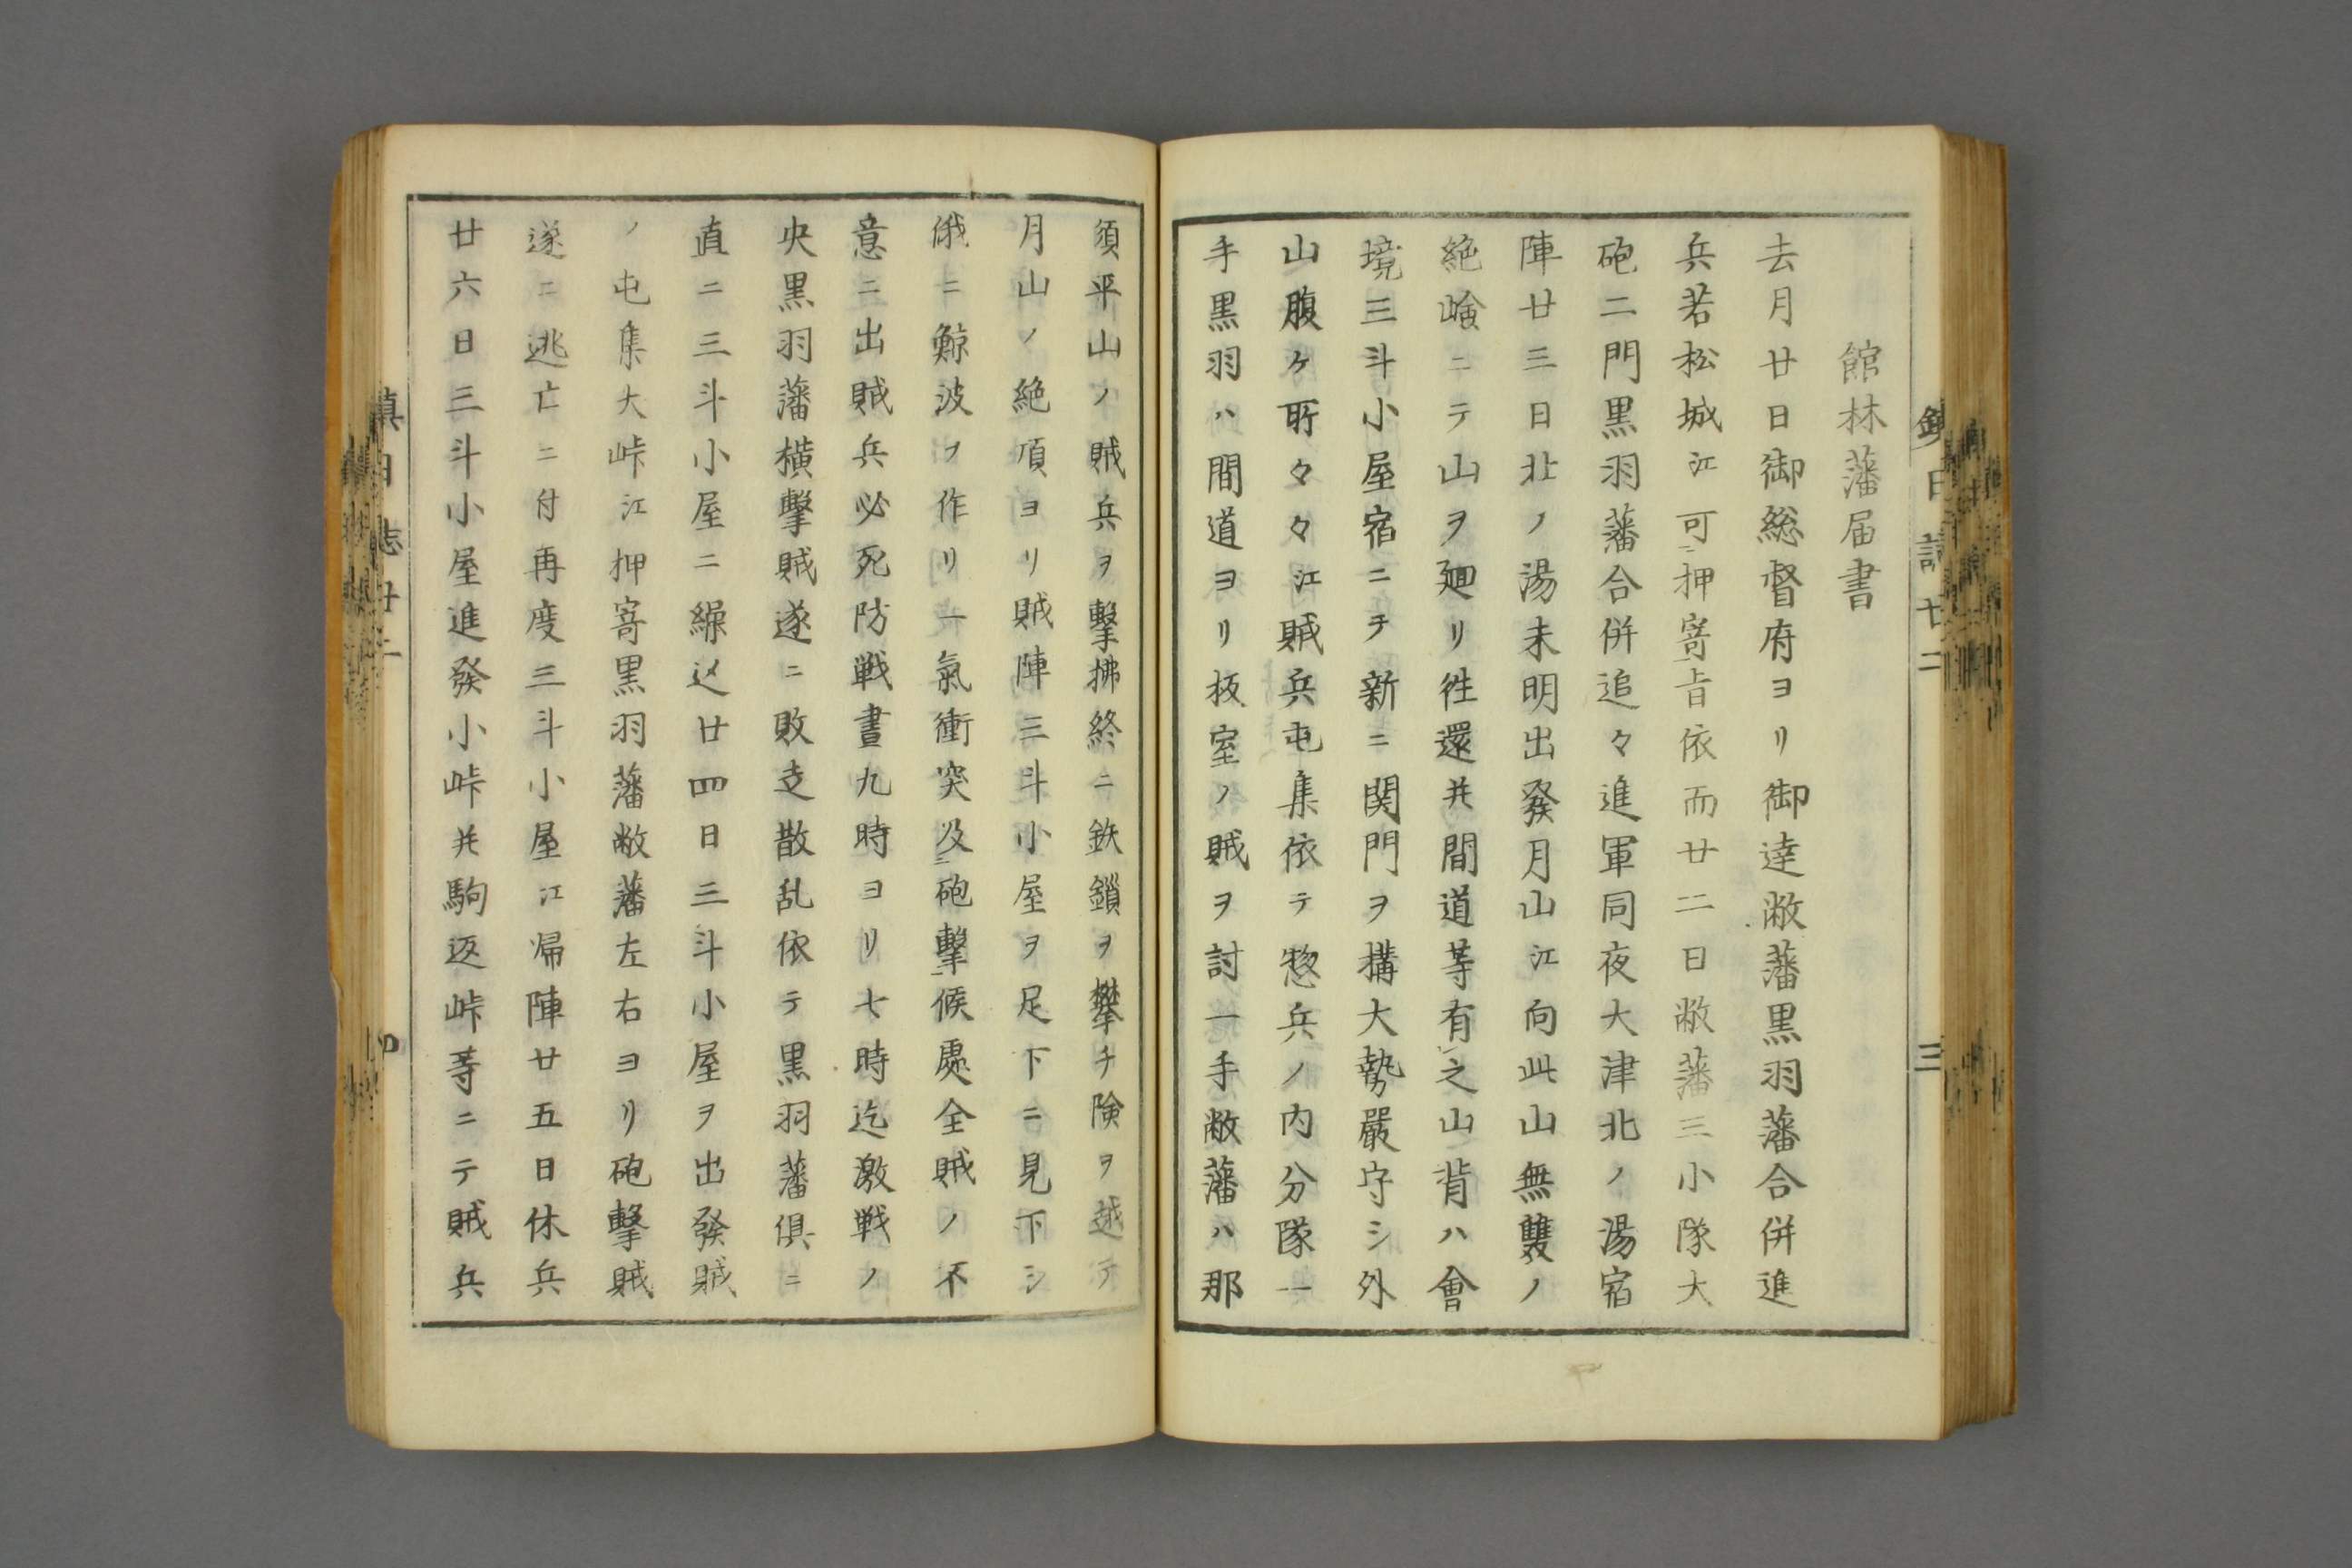 館林藩届書
去月廿日御総督府ヨリ御達敝藩黒羽藩合併進
兵若松城江可押寄旨依而廿二日敝藩三小隊大
砲二門黒羽藩合併追々進軍同夜大津北ノ湯宿
陣廿三日北ノ湯未明出發月山江向此山無雙ノ
絶嶮ニテ山ヲ廻リ徃還幷間道等有之山背ハ會
境三斗小屋宿ニテ新ニ関門ヲ構大勢嚴守シ外
山腹ケ所々々江賊兵屯集依テ惣兵ノ内分隊一
手黒羽ハ間道ヨリ板室ノ賊ヲ討一手敝藩ハ那
須平山ノ賊兵ヲ擊拂終ニ鉄鎖ヲ攀チ険ヲ越テ
月山ノ絶頂ヨリ賊陣三斗小屋ヲ足下ニ見下シ
俄ニ鯨波ヲ作リ一氣衝突及砲擊候處全賊ノ不
意ニ出賊兵必死防戦晝九時ヨリ七時迄激戦ノ
央黒羽藩横擊賊遂ニ敗走散乱依テ黒羽藩倶ニ
直ニ三斗小屋ニ繰込廿四日三斗小屋ヲ出發賊
ノ屯集大峠江押寄黒羽藩敝藩左右ヨリ砲擊賊
遂ニ逃亡ニ付再度三斗小屋江帰陣廿五日休兵
廿六日三斗小屋進發小峠幷駒返峠等ニテ賊兵